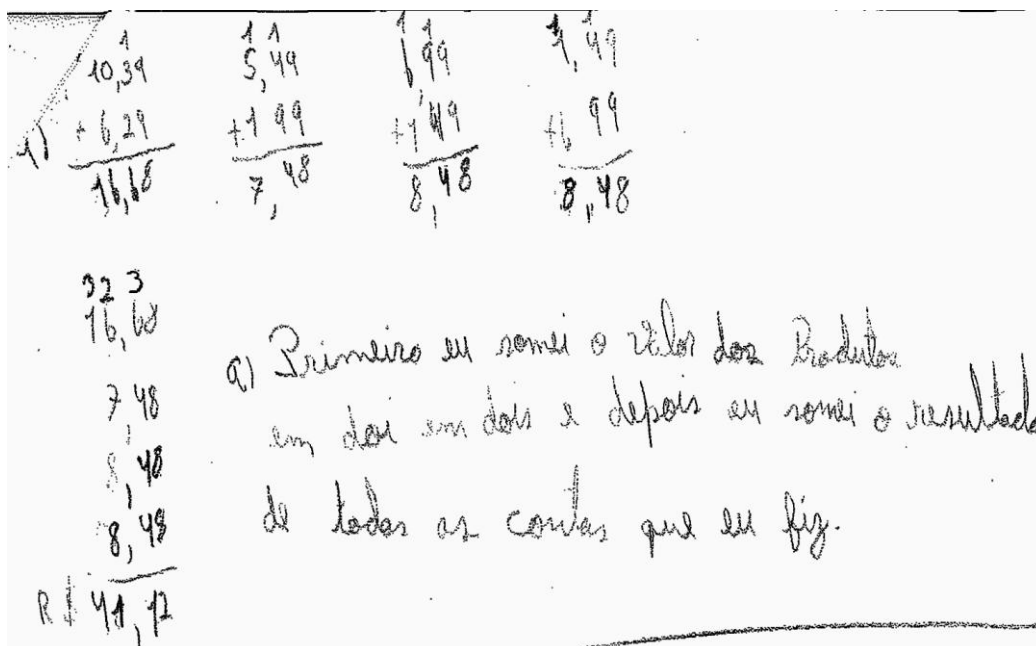 1 1 1 1 1 1
10,39 5,49 6,99 1,49
1) + 6,29 +1 99 +1,49 +6 99
16,68 7,48 8,48 8,48
3 2 3
16,68
7,48
8,48
8,48
R$ 41,12
a) Primeiro eu somei o valor dos Produtos
em doi em dois e depois eu somei o resultado
de todas as contas que eu fiz.